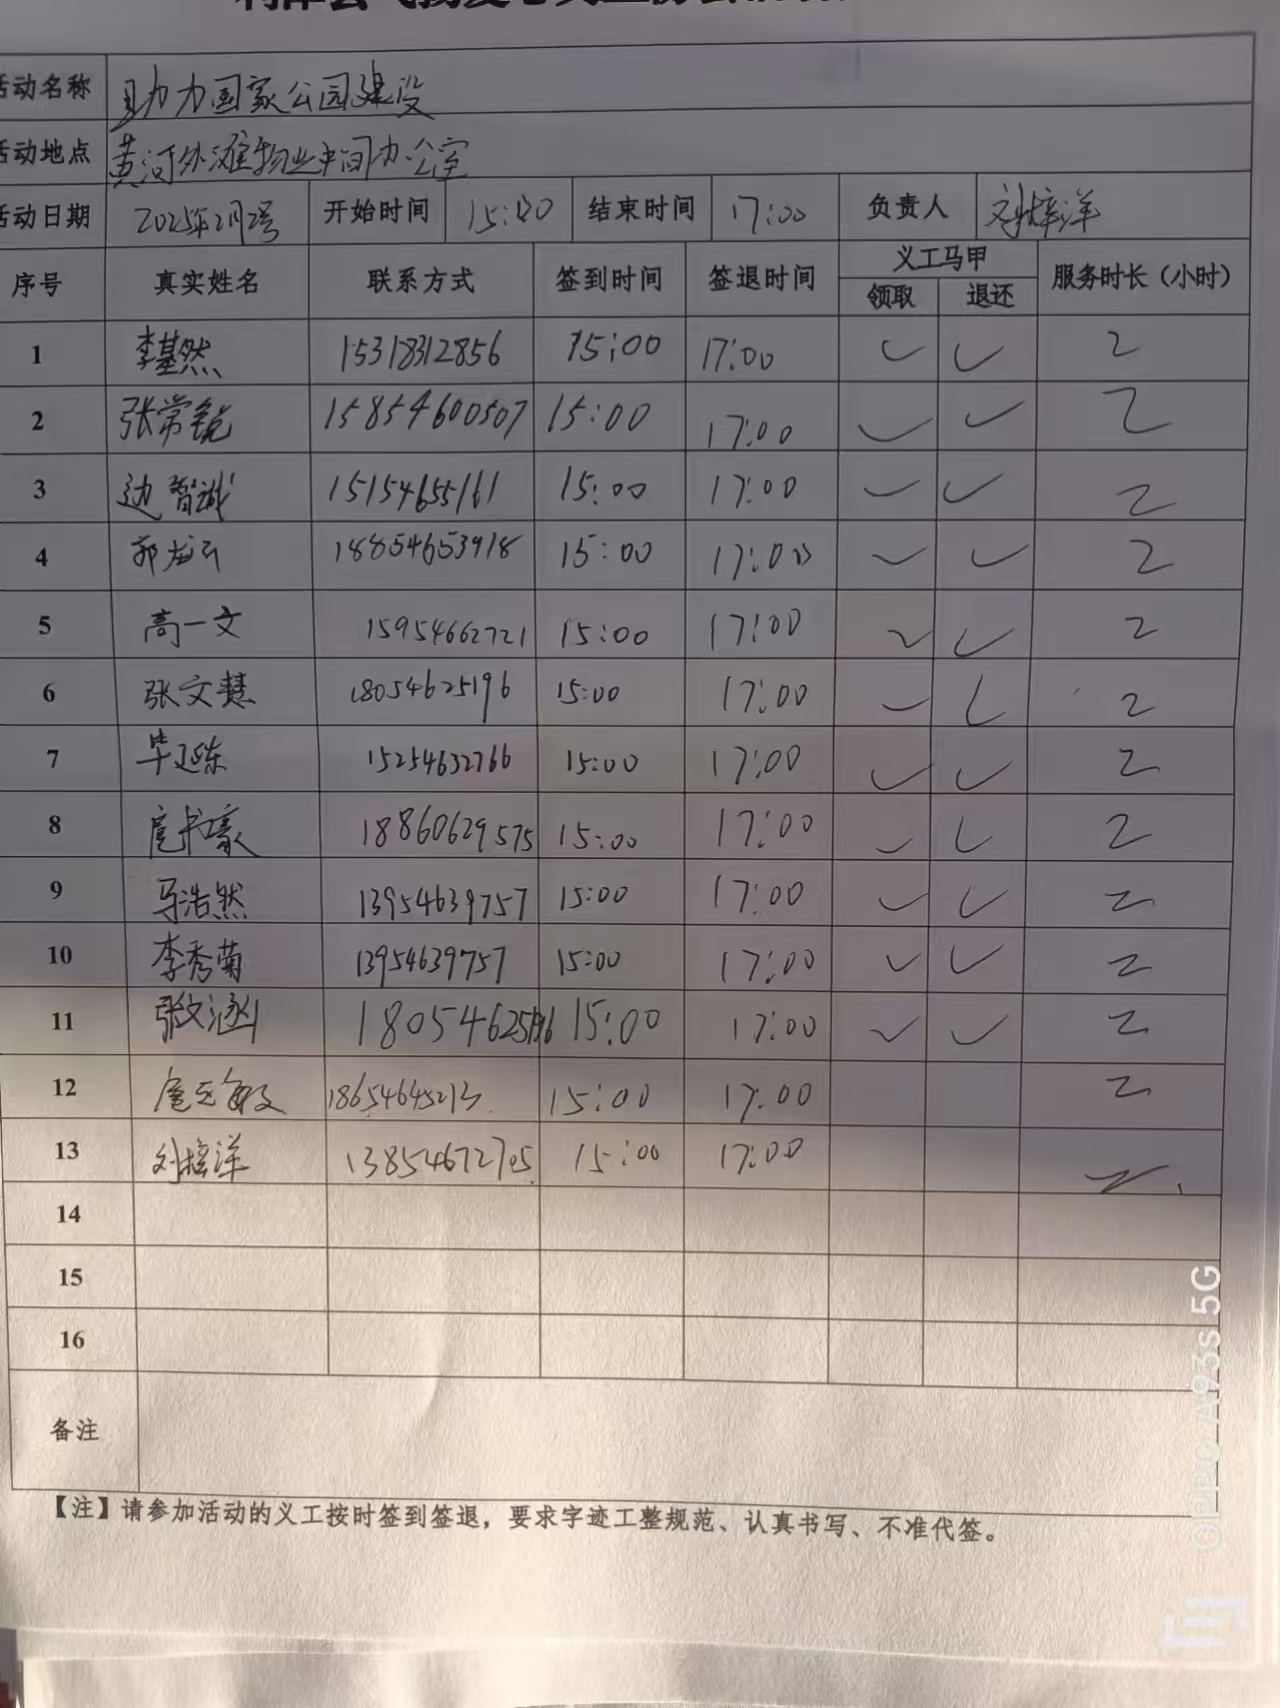 活动名称 助力国家公园建设
活动地点 黄河外滩物业中间办公室
活动日期 2025年2月2号 开始时间 15:00 结束时间 17:00 负责人 刘梓洋
序号 真实姓名 联系方式 签到时间 签退时间 义工马甲 服务时长（小时）
领取 退还
1 李基然 15318312856 15:00 17:00 ✓ ✓ 2
2 张常锐 15854600507 15:00 17:00 ✓ ✓ 2
3 边智诚 15154655161 15:00 17:00 ✓ ✓ 2
4 郭龙云 18854653918 15:00 17:00 ✓ ✓ 2
5 高一文 15954662721 15:00 17:00 ✓ ✓ 2
6 张文慧 18054625196 15:00 17:00 ✓ ✓ 2
7 毕延东 15254632766 15:00 17:00 ✓ ✓ 2
8 扈书豪 18860629575 15:00 17:00 ✓ ✓ 2
9 马浩然 13954639757 15:00 17:00 ✓ ✓ 2
10 李秀菊 13954639757 15:00 17:00 ✓ ✓ 2
11 张文涵 18054625196 15:00 17:00 ✓ ✓ 2
12 扈 敏 18654645213 15:00 17:00 2
13 刘梓洋 13854672705 15:00 17:00 2
14
15
16
备注
【注】请参加活动的义工按时签到签退，要求字迹工整规范、认真书写、不准代签。
OPPO A93s 5G